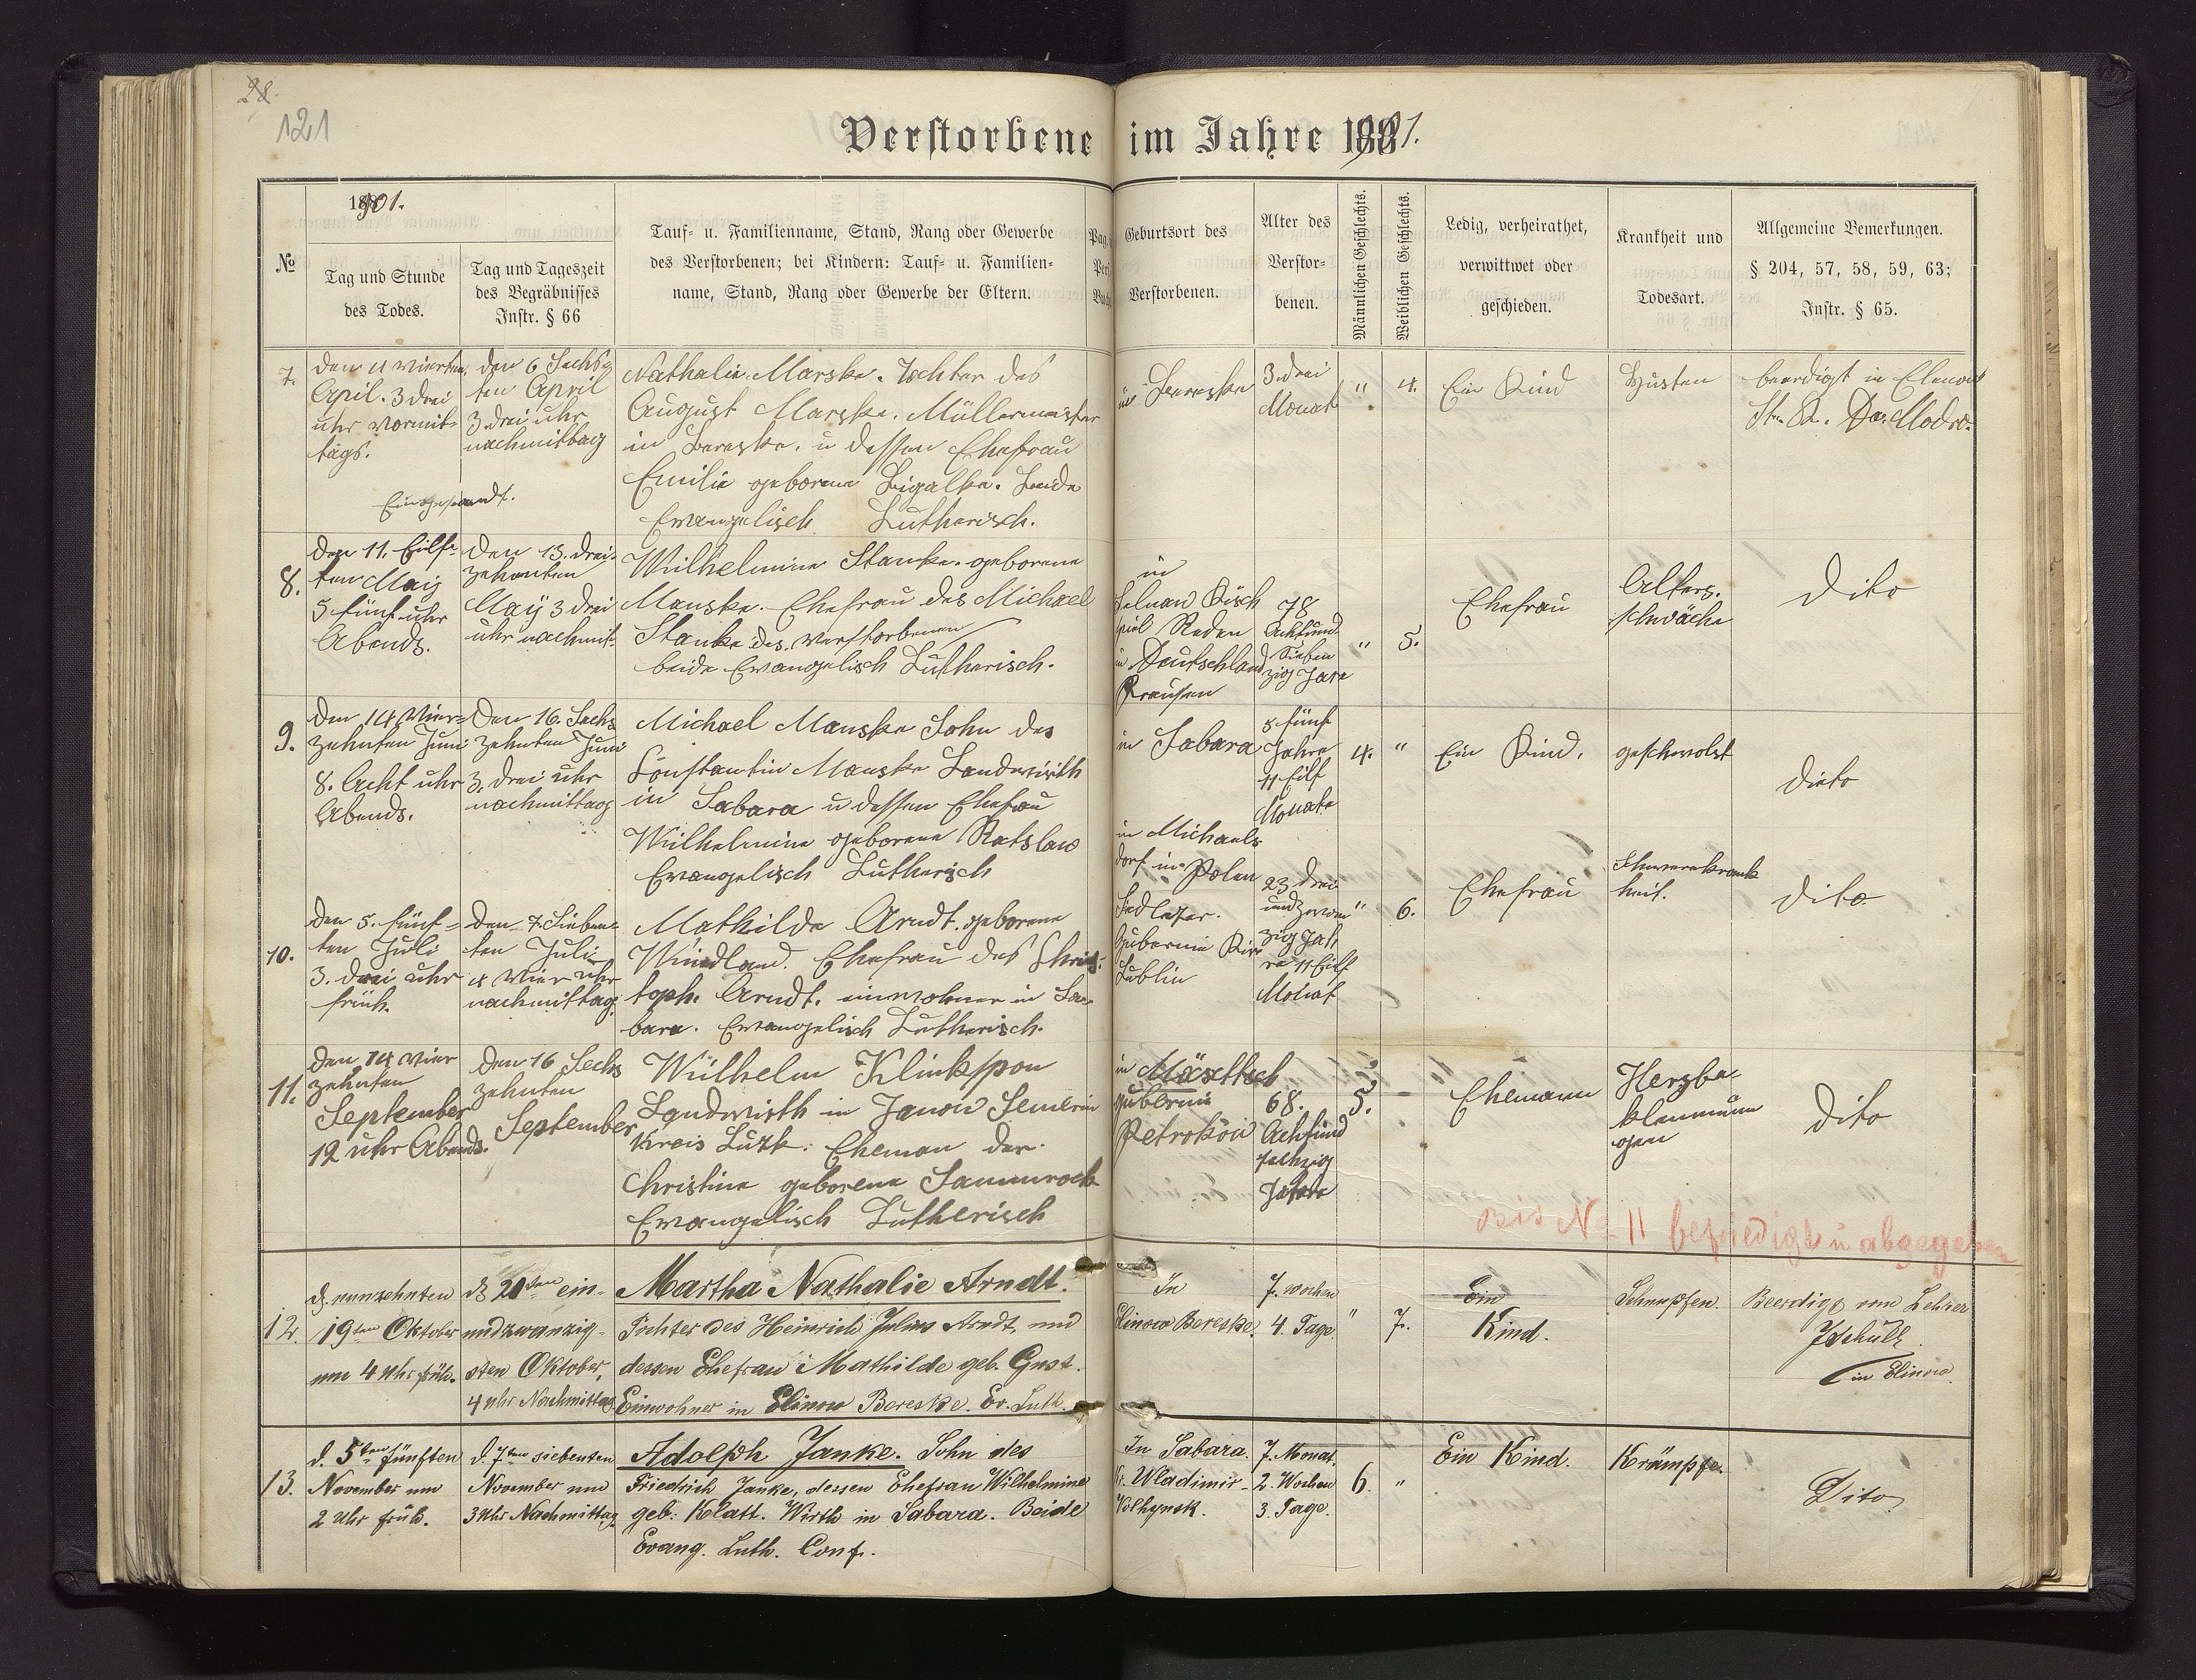 28.
121
Verstorbene im Jahre 1901.
1901.
№
Tag und Stunde
des Todes.
Tag und Tageszeit
des Begräbnisses
Instr. § 66
Tauf- u. Familienname, Stand, Rang oder Gewerbe
des Verstorbenen; bei Kindern: Tauf- u. Familien-
name, Stand, Rang oder Gewerbe der Eltern.
Pag.
Geburtsort des
Verstorbenen.
Alter des
Verstor-
benen.
Männlichen Geschlechts.
Weiblichen Geschlechts.
Ledig, verheirathet,
verwittwet oder
geschieden.
Krankheit und
Todesart.
Allgemeine Bemerkungen.
§ 204, 57, 58, 59, 63;
Instr. § 65.
7.
den 4 vierten
April. 3 drei
uhr vormit-
tags.
den 6 Sechs
ten April
3 drei uhr
nachmittag
Nathalie Marske. Tochter des
August Marske. Müllermeister
in Bereske. u dessen Ehefrau
Emilie geborene Ligalke. beide
Evangelisch Lutherisch.
Eingesandt.
in Bereske
3 drei
Monat
"
4.
Ein Kind
Husten
beerdigt in
8.
Den 11. Eilf-
ten May
5 fünf uhr
Abends.
Den 13. drei-
zehenten
May 3 drei
uhr nachmit-
Wilhelmine Stanke. geborene
Manske. Ehefrau des Michael
Stanke des verstorbenen
beide Evangelisch Lutherisch.
in
Selnau Kisch
piel Reden
in Deutschland
Preusen
78
Achtund
Sieben
zig Jare
"
5.
Ehefrau
Alters.
schwäche
Dito
9.
Den 14 Vier-
zehnten Juni
8. Acht uhr
Abends.
Den 16. Sechs
zehnten Juni
3. drei uhr
nachmittag
Michael Manske Sohn des
Constantin Manske Landwirth
in Sabara u dessen Ehefrau
Wilhelmine geborene Ratslaw
Evangelisch Lutherisch
in Sabara
5 fünf
Jahre
11 Eilf
Monate
4.
"
Ein Kind.
geschwolst
Dieto
10.
Den 5. fünf-
ten Juli
3. drei uhr
früh.
Den 7. Sieben-
ten Juli
4 vier uhr
nachmittag.
Mathilde Arndt. geborene
Windland. Ehefrau des Chris-
toph. Arndt. einwohner in Sa-
bara. Evangelisch Lutherisch.
in Michaels
dorf in Polen
Sedlezer.
Gubernie
Lublin
23 drei
undzwan
zig Jah
re 11 Eilf
Monat
"
6.
Ehefrau
Schwerekrank
heit.
Dito
11.
Den 14 vier
zehnten
September
12 uhr Abends.
Den 16 Sechs
zehnten
September
Wilhelm Klinkspon
Landwirth in Janow
Kreis Luzk. Eheman der
Christine geborene Sammrock
Evangelisch Lutherisch
in
Gubernie
Petrokow
68.
Achtund
sechzig
Jahre
5.
-
Ehemann
Herzbe-
klemmun
gen
Dito
bis No 11 befriedigt u abgegeben
12.
d. neunzehnten
19ten Oktober
um 4 Uhr früh.
d. 21sten ein-
undzwanzig-
sten Oktober,
4 uhr Nachmittag.
Martha Nathalie Arndt.
Tochter des Heinrich Julius Arndt, und
dessen Ehefrau Mathilde geb. Gust.
Einwohner in Elinow Bereske. Ev. Luth.
In
Elinow Bereske.
7. wochen
4. Tage.
"
7.
Ein
Kind.
Schnupfen.
Beerdigt vom Lehrer
J. Schulz
in Elinow.
13.
d. 5ten fünften
November um
2 Uhr früh.
d. 7ten siebenten
November um
3 Uhr Nachmittag.
Adolph Janke. Sohn des
Friedrich Janke, dessen Ehefrau Wilhelmine
geb: Klatt. Wirth in Sabara. Beide
Evang. Luth. Conf.
In Sabara.
Kr. Wladimir-
Wolhynsk.
7. Monat.
2. Wochen
3. Tage.
6.
"
Ein Kind.
Krämpfe.
Dito